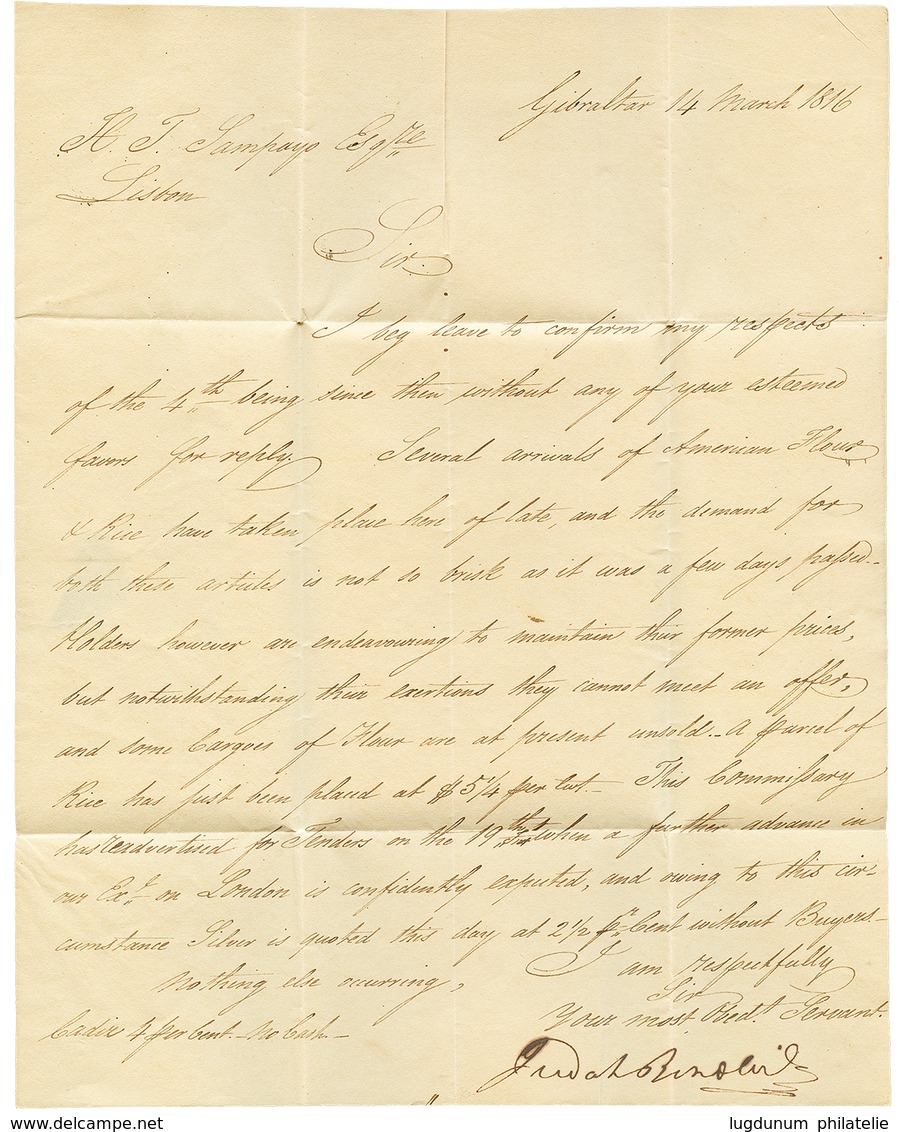 Gibraltar 14 March 1816
H. T. Sampayo Esqre
Lisbon
Sir
I beg leave to confirm my respects
of the 4th being since then without any of your esteemed
favors for reply. Several arrivals of American Flour
& Rice have taken place here of late, and the demand for
both these articles is not so brisk as it was a few days passed.-
Holders however are endeavouring to maintain their former prices,
but notwithstanding their exertions they cannot meet an offer,
and some Cargoes of Flour are at present unsold.- A parcel of
Rice has just been placed at $5 1/4 per Cwt.- This Commissary
has readvertised for Tenders on the 19th when a further advance in
our Exe. on London is confidently expected, and owing to this cir-
cumstance Silver is quoted this day at 2 1/2 pr Cent without Buyers.-
Nothing else occurring, I am respectfully
Sir
Your most Obedt. Servant.
Cadiz 4 per Cent.- No Cash.-
Judah Benoliel
delcampe.net
lugdunum philatelie